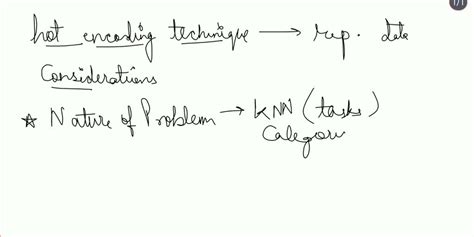 hot encoding technique → rep. data
Considerations
* Nature of Problem → KNN (tasks)
Categori
1/1